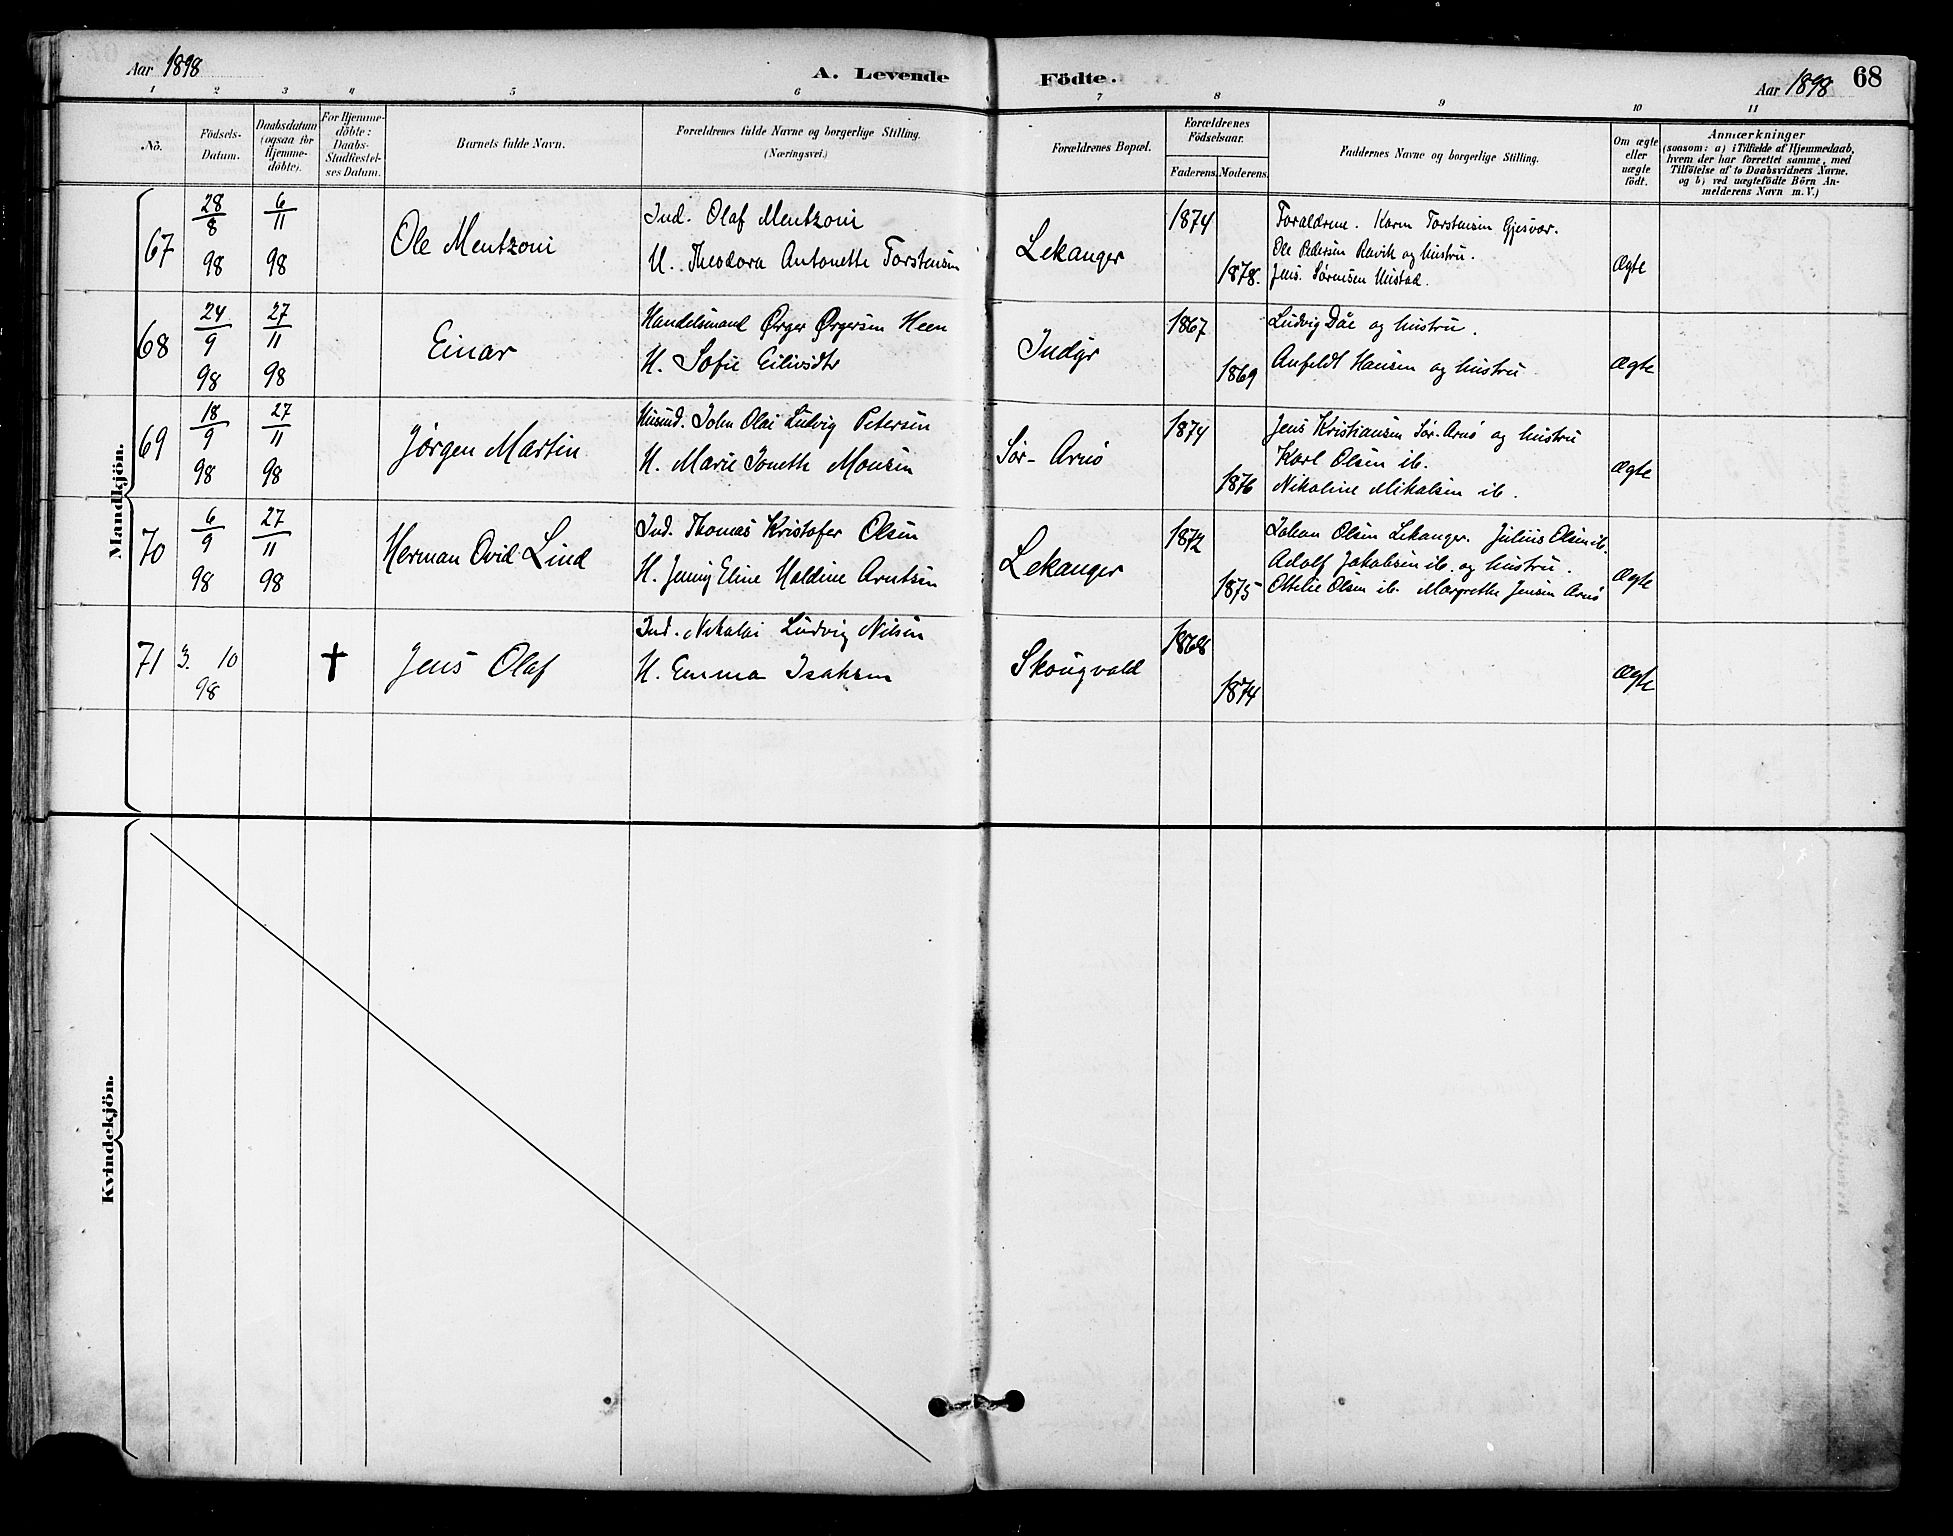 Aar 1898
A. Levende Födte.
Aar 1898 68
1 2 3 4 5 6 7 8 9 10 11
No.
Födsels-
Datum.
Daabsdatum
(ogsaa for
Hjemme-
döbte).
For Hjemme-
döbte:
Daabs-
Stadfæstel-
ses Datum.
Barnets fulde Navn.
Forældrenes fulde Navne og borgerlige Stilling.
(Næringsvei.)
Forældrenes Bopæl.
Forældrenes
Födselsaar.
Faderens. Moderens.
Faddernes Navne og borgerlige Stilling.
Om ægte
eller
uægte
födt.
Anmærkninger
(saasom: a) i Tilfælde af Hjemmedaab,
hvem der har forrettet samme, med
Tilföielse af to Daabsvidners Navne,
og b) ved uægtefödte Börn An-
melderens Navn m. V.)
Mandkjön.
67
28/8 98
6/11 98
Ole Mentzoni
Ind. Olaf Mentzoni
H. Theodora Antonette Torstensen
Lekanger
1874
1878.
Forældrene. Karen Torstensen Gjesvær.
Ole Pedersen Ravik og hustru.
Jens Sørensen Unstad.
Ægte
68
24/9 98
27/11 98
Einar
Handelsmand Ørger Ørgersen Heen
H. Sofie Eilivsdtr
Indyr
1867
1869
Ludvig Dåe og hustru.
Anfeldt Hansen og hustru
Ægte
69
18/9 98
27/11 98
Jørgen Martin
Husmd. John Olai Ludvig Petersen
H. Marie Jonette Monsen
Sør-Arnø
1874
1876
Jens Kristiansen Sør-Arnø og hustru
Karl Olsen ib.
Nikoline Mikalsen ib.
Ægte
70
6/9 98
27/11 98
Herman Ovid Lind
Ind. Thomas Kristofer Olsen
H. Jenny Eline Haldine Arntsen
Lekanger
1872
1875
Johan Olsen Lekanger. Julius Olsen ib.
Adolf Jakobsen ib. og hustru.
Ottelie Olsen ib. Margrethe Jensen Arnø
Ægte
71
3. 10
98
†
Jens Olaf
Ind. Nikolai Ludvig Nilsen
H. Emma Isaksen
Skougvald
1868
1874
Ægte
Kvindekjön.